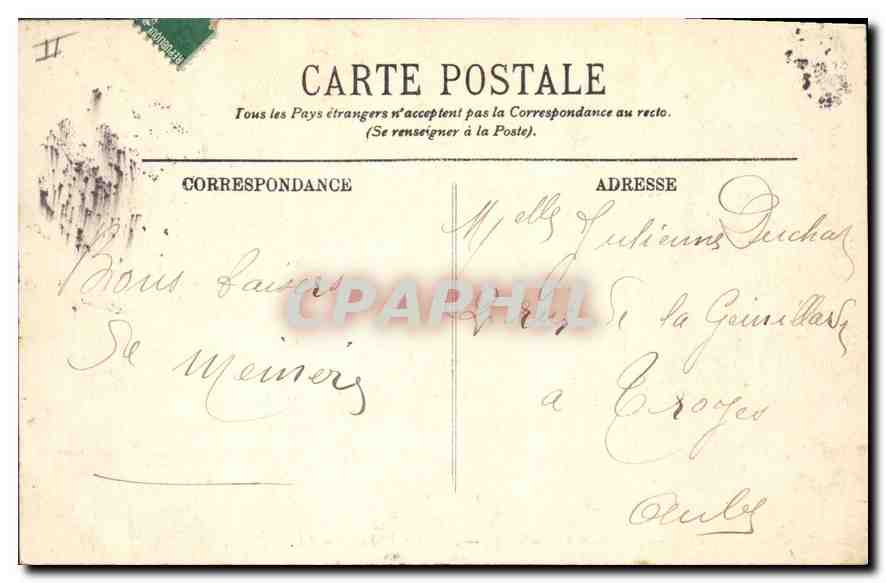 II
REPUBLIQUE
CARTE POSTALE
Tous les Pays étrangers n'acceptent pas la Correspondance au recto.
(Se renseigner à la Poste).
CORRESPONDANCE
Bons baisers
de
ADRESSE
Melle Julienne Duchat
de la
a Troyes
Aube
CPAPHIL